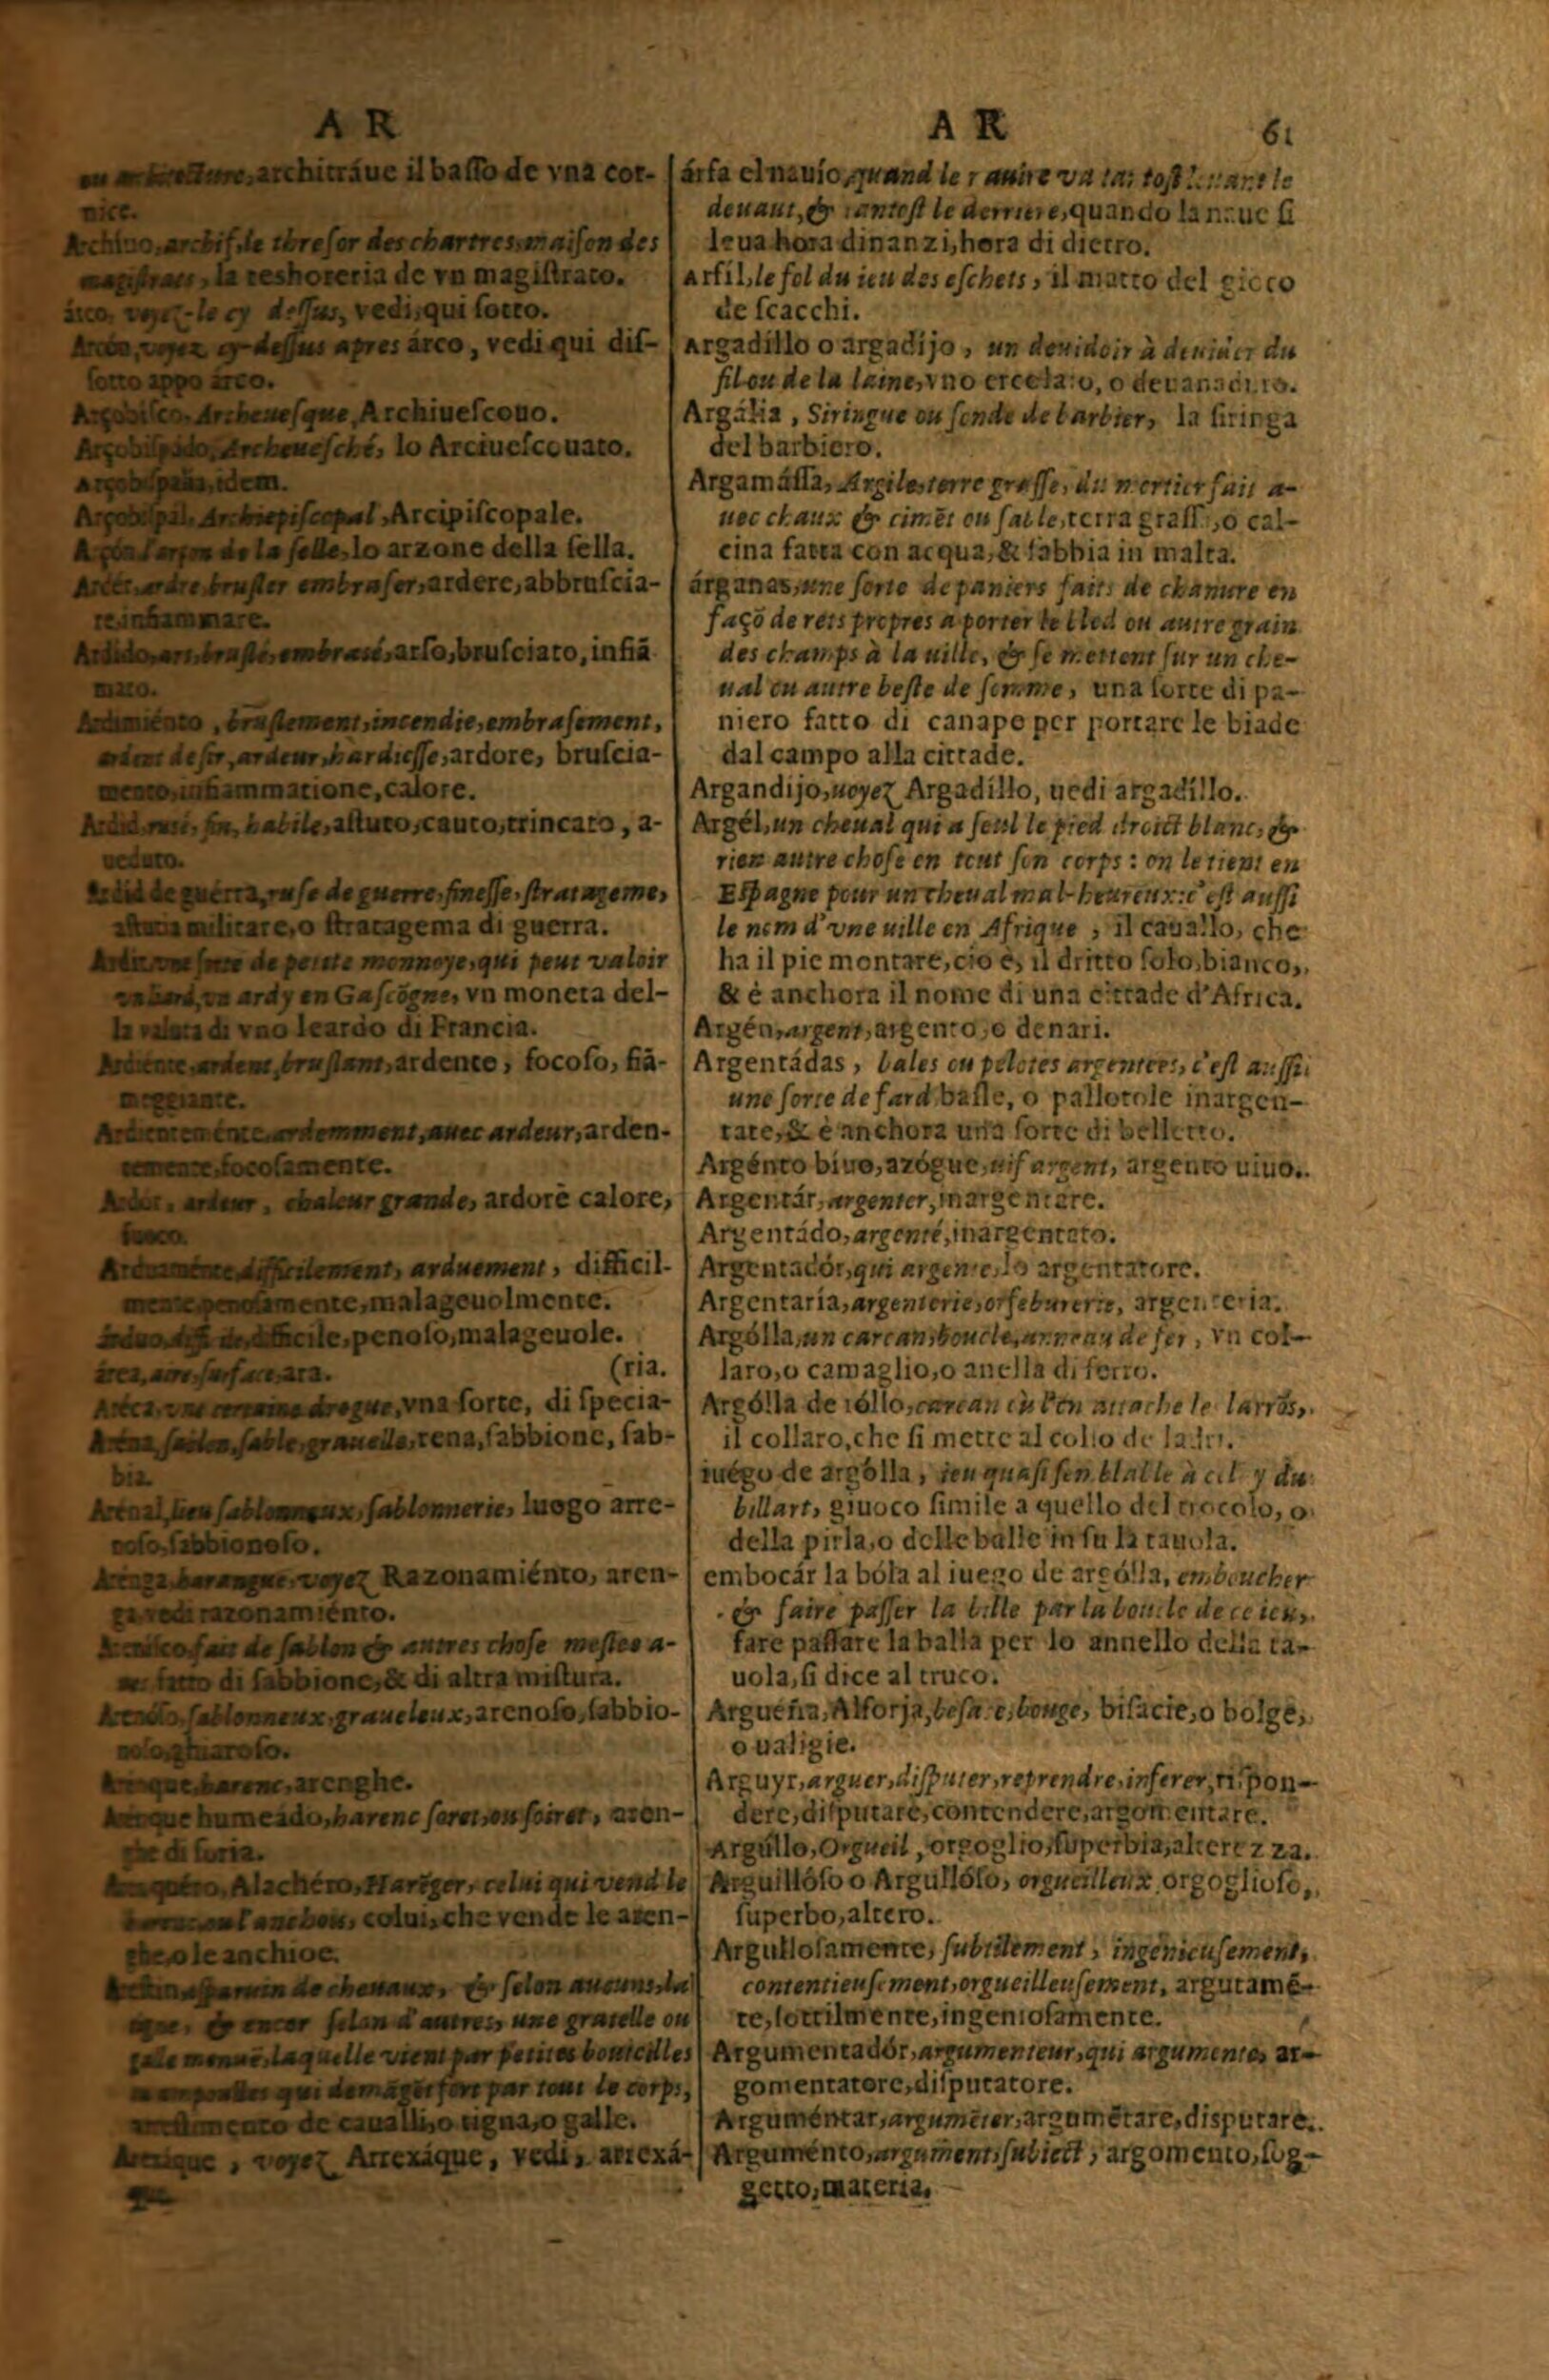 A R
architráue il baſſo de vna cor-
nice.
Archiuo, archif, le threſor des chartres, maiſon des
magiſtrats, la teshoreria de vn magiſtrato.
voyez-le cy deſſus, vedi, qui ſotto.
voyez cy-deſſus apres árco, vedi qui diſ-
ſotto appo árco.
Arçobiſco, Archeueſque, Archiueſcouo.
Arçobiſpado, Archeueſché, lo Arciueſcouato.
idem.
Arçobiſpál, Archiepiſcopal, Arcipiſcopale.
Arçón l'arçon de la ſelle, lo arzone della ſella.
Ardér, ardre, bruſler embraſer, ardere, abbruſcia-
re, infiammare.
Ardido, ars, bruſlé, embrasé, arſo, bruſciato, infiā
mato.
Ardimiénto, bruſlement, incendie, embraſement,
ardent deſir, ardeur, hardieſſe, ardore, bruſcia-
mento, infiammatione, calore.
Ardid, rusé, fin, habile, aſtuto, cauto, trincato, a-
ueduto.
Ardid de guérra, ruſe de guerre, fineſſe, ſtratageme,
aſtutia militare, o ſtratagema di guerra.
de petite monnoye, qui peut valoir
vn ardy en Gaſcōgne, vn moneta del-
la valuta di vno leardo di Francia.
Ardiénte, ardent, bruſlant, ardente, focoſo, fiā-
meggiante.
ardemment, auec ardeur, arden-
temente, focoſamente.
Ardór, ardeur, chaleur grande, ardorè calore,
fuoco.
difficilement, arduement, difficil-
mente, penoſamente, malageuolmente.
difficile, penoſo, malageuole.
área, aire, ſurface, ara. (ria.
Aréca, vne certaine drogue, vna ſorte, di ſpecia-
Aréna, ſable, grauelle, rena, ſabbione, ſab-
bia.
Arenal, lieu ſablonneux, ſablonnerie, luogo arre-
noſo, ſabbionoſo.
Arénga, harangue, voyez Razonamiénto, aren-
ga vedi razonamiénto.
fait de ſablon & autres choſe meſlee a-
fatto di ſabbione, & di altra miſtura.
ſablonneux, graueleux, arenoſo, ſabbio-
noſo, ghiaroſo.
Arénque, harenc, arenghe.
Arénque humeádo, harenc ſoret, ou ſoiret, aren-
ghe di furia.
Alachéro, Harēger, celui qui vend le
colui, che vende le aren-
ghe, o le anchioe.
de cheuaux, & ſelon aucuns, la
& encor ſelon d'autres, une gratelle ou
gale menuë, laquelle vient par petites bouteilles
qui demāgēt fort par tout le corps,
de caualli, o tigna, o galle.
voyez Arrexáque, vedi, arrexá-
que.
A R 61
árfa el nauío, quand le nauire va tantoſt leuant le
deuant, & tantoſt le derriere, quando la naue ſi
leua hora dinanzi, hora di dietro.
Arfíl, le fol du ieu des eſchets, il matto del gioco
de ſcacchi.
Argadíllo o argadíjo, un deuidoir à deuider du
fil ou de la laine, vno ercolaio, o deuanaduro.
Argália, Siringue ou ſonde de barbier, la ſiringa
del barbiero.
Argamáſſa, Argile, terre graſſe, du mortier fait a-
uec chaux & cimēt ou ſable, terra graſſa, o cal-
cina fatta con acqua, & ſabbia in malta.
árganas, une ſorte de paniers faits de chanure en
façō de rets propres a porter le bled ou autre grain
des champs à la uille, & ſe mettent ſur un che-
ual ou autre beſte de ſomme, una ſorte di pa-
niero fatto di canape per portare le biade
dal campo alla cittade.
Argandijo, uoyez Argadíllo, uedi argadíllo.
Argél, un cheual qui a ſeul le pied droict blanc, &
rien autre choſe en tout ſon corps : on le tient en
Eſpagne pour un cheual mal-heureux: c'eſt auſſi
le nom d'vne uille en Afrique, il cauallo, che
ha il pie montare, cio è, il dritto ſolo, bianco,
& è anchora il nome di una cittade d'Africa.
Argén, argent, argento, o denari.
Argentádas, bales ou pelotes argentees, c'eſt auſſi
une ſorte de fard balle, o pallotole inargen-
tate, & è anchora una ſorte di belletto.
Argénto bíuo, azógue, uif argent, argento uiuo.
Argentár, argenter, inargentare.
Argentádo, argenté, inargentato.
Argentadór, qui argente, lo argentatore.
Argentaría, argenterie, orfeburerie, argenteria.
Argólla, un carcan, boucle, anneau de fer, vn col-
laro, o camaglio, o anella di ferro.
Argólla de róllo, carcan où l'on attache le larrōs,
il collaro, che ſi mette al collo de ladri.
iuégo de argólla, ieu quaſi ſemblable à celuy du
billart, giuoco ſimile a quello del trocolo, o
della pirla, o delle balle in ſu la tauola.
embocár la bóla al iuego de argólla, emboucher
& faire paſſer la bille par la boucle de ce ieu,
fare paſſare la balla per lo annello della ta-
uola, ſi dice al truco.
Arguéña, Alforja, beſace, bouge, biſacie, o bolge,
o ualigie.
Arguyr, arguer, diſputer, reprendre, inferer, riſpon-
dere, diſputare, contendere, argomentare.
Argúllo, Orgueil, orgoglio, ſuperbia, alterezza.
Arguillóſo o Argullóſo, orgueilleux, orgoglioſo,
ſuperbo, altero.
Argulloſamente, ſubtilement, ingenieuſement,
contentieuſement, orgueilleuſement, argutamē-
te, ſottilmente, ingenioſamente.
Argumentadór, argumenteur, qui argumente, ar-
gomentatore, diſputatore.
Arguméntar, argumēter, argumētare, disputare.
Arguménto, argument, ſubiect, argomento, ſog-
getto, materia.